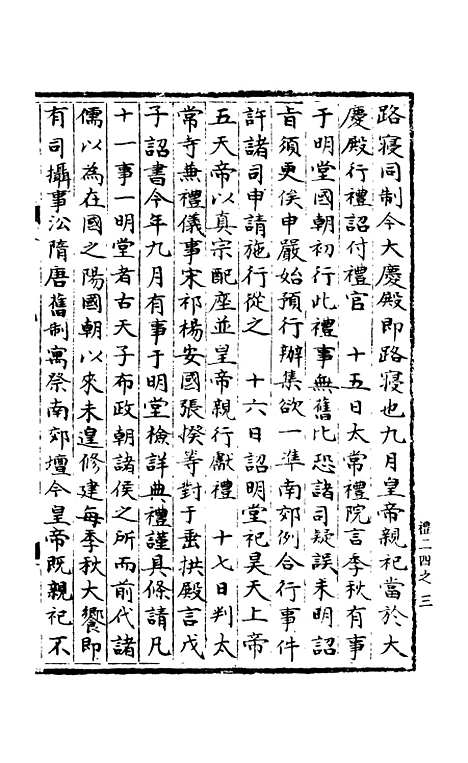 路寢同制今大慶殿即路寢也九月皇帝親祀當於大
慶殿行禮詔付禮官　十五日太常禮院言季秋有事
于明堂國朝初行此禮事無舊比恐諸司疑誤未明詔
旨須更俟申嚴始預行辦集欲一準南郊例合行事件
許諸司申請施行從之　十六日詔明堂祀昊天上帝
五天帝以真宗配座並皇帝親行獻禮　十七日判太
常寺兼禮儀事宋祁楊安國張揆等對于垂拱殿言戊
子詔書今年九月有事于明堂檢詳典禮謹具條請凡
十一事一明堂者古天子布政朝諸侯之所而前代諸
儒以為在國之陽國朝以來未遑修建每季秋大饗即
有司攝事㳂隋唐舊制寓祭南郊壇今皇帝既親祀不
禮二四之三